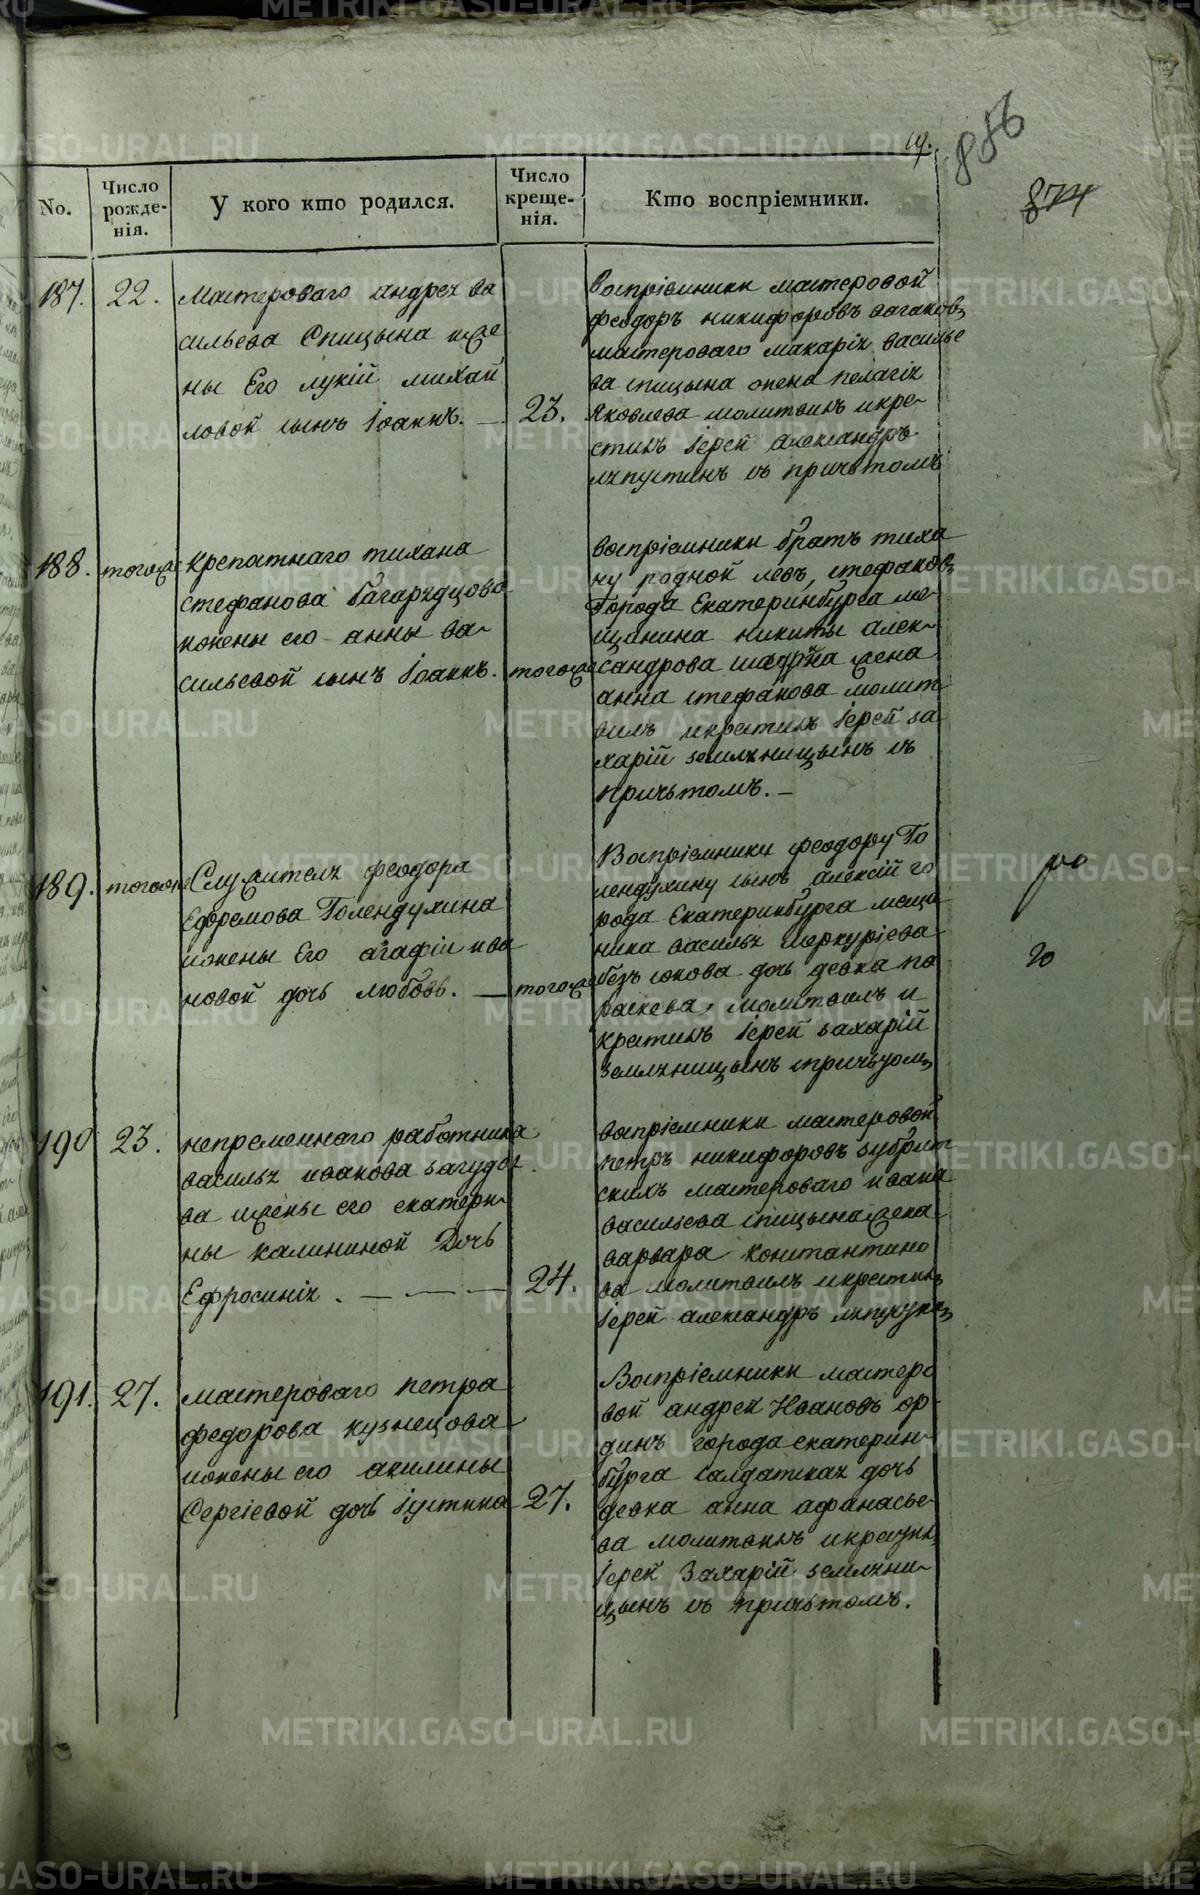 19.
886
874
No.
Число рожде-нія.
У кого кто родился.
Число креще-нія.
Кто воспріемники.
187.
22.
Мастероваго андрея ва
сильева Спицына же
ны Его лукіи михай
ловой сынъ Іоаннъ. —
23.
Воспріемники мастеровой
феодоръ никифоровъ
мастероваго макарія василье
ва спицына жена пелагія
Яковлева молитвилъ икре-
стилъ Іерей александръ
ляпустинъ съ причьтомъ
188.
тогоже
крепатнаго тихана
стефанова багарядцова
жжены его анны ва-
сильевой сынъ Іоаннъ.
тогоже
воспріемники братъ тиха
ну родной левъ, стефановъ
города Екатеринбурга ме-
щанина никиты алек-
сандрова жена
анна стефанова молит
вилъ икрестилъ Іерей за
харій земляницынъ съ
причьтомъ. —
189.
тогоже
Служителя феодора
Ефремова Голендухина
жжены Его агафіи ива
новой дочь любовь. —
тогоже
Воспріемники феодору Го
лендухину сынъ алексій го
рода Екатеринбурга меща
нина василья меркуріева
дочь девка па
раскева, молитвилъ и
крестилъ Іерей захарій
земляницынъ спричьтомъ
20
190
23.
непременнаго работника
василья иванова
ва жены его екатери-
ны калининой Дочь
Ефросинія. — — —
24.
воспріемники мастеровой
петръ никифоровъ зубрит
скихъ мастероваго ивана
васильева спицына жена
варвара константино
ва молитвилъ икрестилъ
Іерей александръ ляпустинъ
191.
27.
мастероваго петра
федорова кузнецова
жжены его акилины
Сергіевой дочь Іустина
27.
Воспріемники мастеро
вой андрей Ивановъ ор-
динъ города екатерин-
бурга салдатская дочь
девка анна афанасье-
ва молитвилъ икрестилъ
Іерей Захарій земляни-
цынъ съ причьтомъ.
METRIKI.GASO-URAL.RU